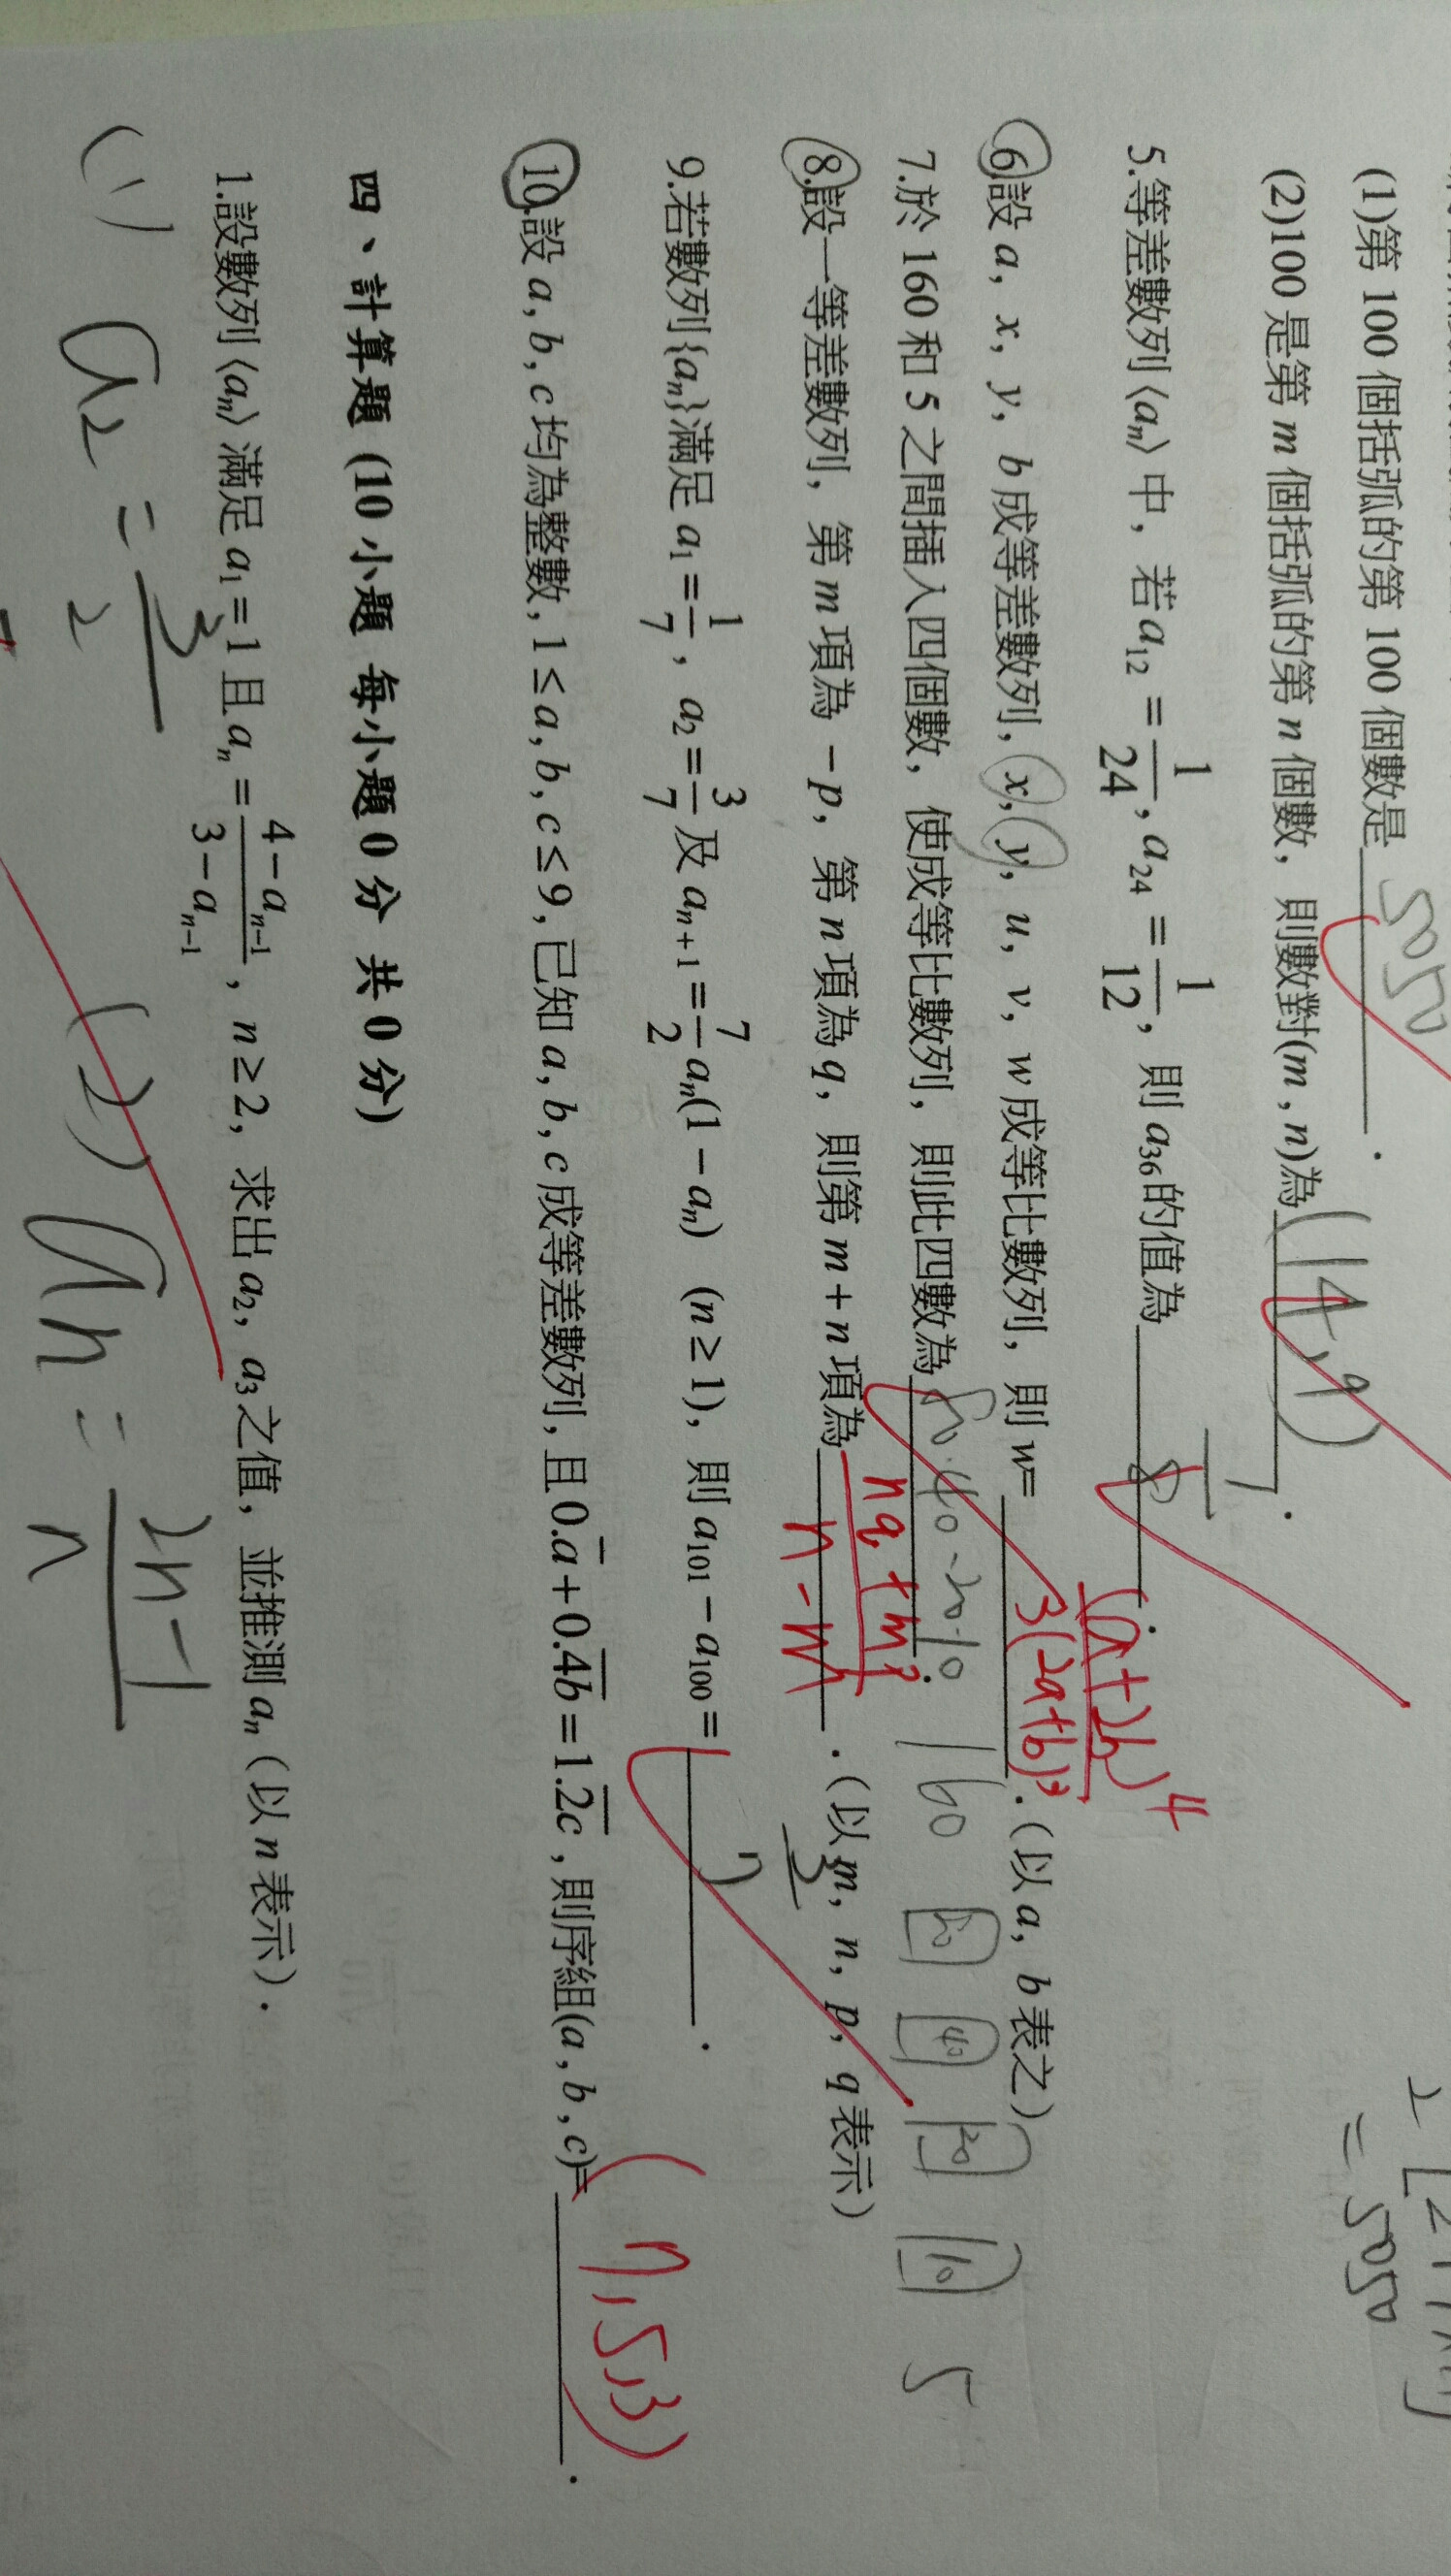 (1)第 100 個括弧的第 100 個數是 5050 .
(2)100 是第 m 個括弧的第 n 個數，則數對(m , n)為 (14 , 9) .
5.等差數列⟨aₙ⟩中，若 a₁₂ = 1/24 , a₂₄ = 1/12，則 a₃₆的值為 1/8 .
6.設 a，x，y，b 成等差數列，x，y，u，v，w 成等比數列，則 w= (a+2b)⁴ / 3(2a+b)³ .（以 a，b 表之）
7.於 160 和 5 之間插入四個數，使成等比數列，則此四數為 80.40.20.10 .
160 80 40 20 10 5
8.設一等差數列，第 m 項為 −p，第 n 項為 q，則第 m + n 項為 nq+mp / n-m .（以 m，n，p，q 表示）
9.若數列{aₙ}滿足 a₁ = 1/7，a₂ = 3/7 及 aₙ₊₁ = 7/2 aₙ(1 − aₙ) (n ≥ 1)，則 a₁₀₁ − a₁₀₀ =
10.設 a , b , c 均為整數，1 ≤ a , b , c ≤ 9，已知 a , b , c 成等差數列，且 0.a̅ + 0.4̅b̅ = 1.2̅c̅，則序組(a , b , c)= (7,5,3) .
四、計算題 (10 小題 每小題 0 分 共 0 分)
1.設數列⟨aₙ⟩ 滿足 a₁ = 1 且 aₙ = (4 − aₙ₋₁)/(3 − aₙ₋₁)，n ≥ 2，求出 a₂，a₃ 之值，並推測 aₙ（以 n 表示）.
(1) a₂ = 3/2 (2) an = 2n-1 / n
= 5050